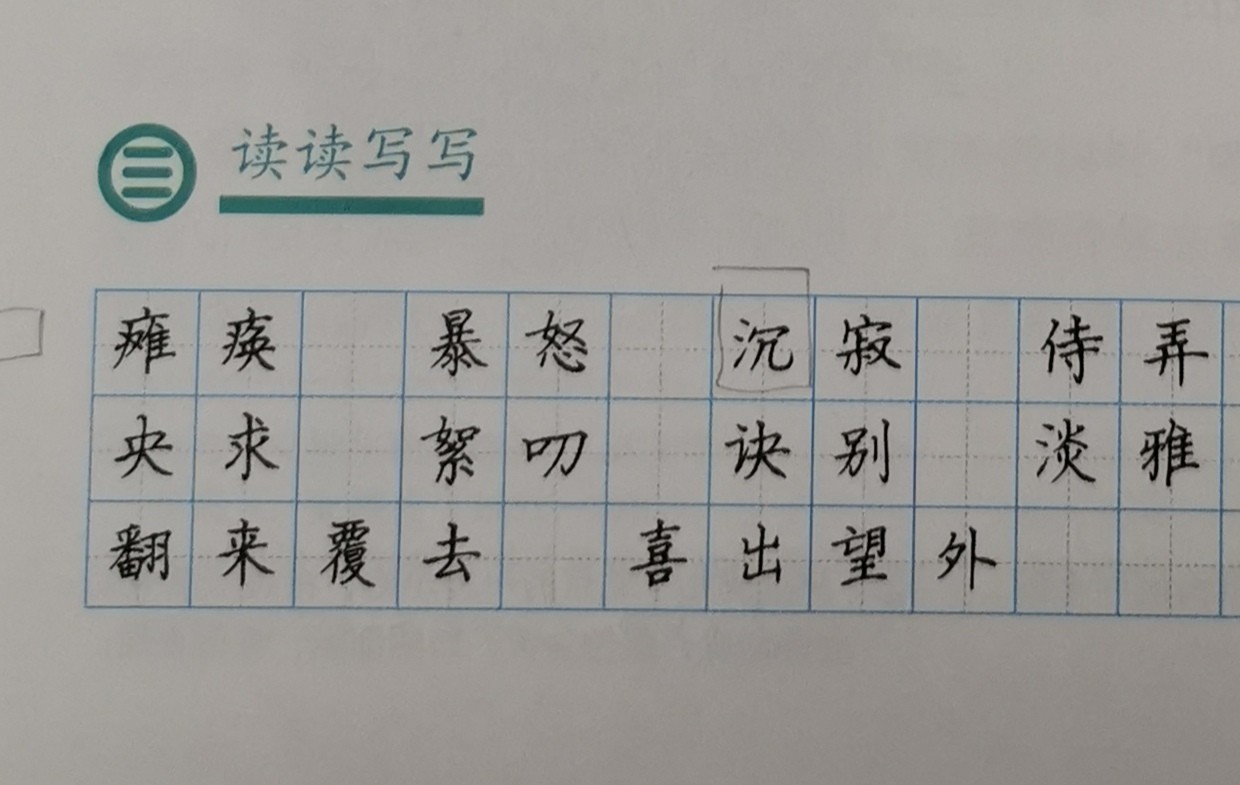 读读写写
瘫痪 暴怒 沉寂 侍弄
央求 絮叨 诀别 淡雅
翻来覆去 喜出望外